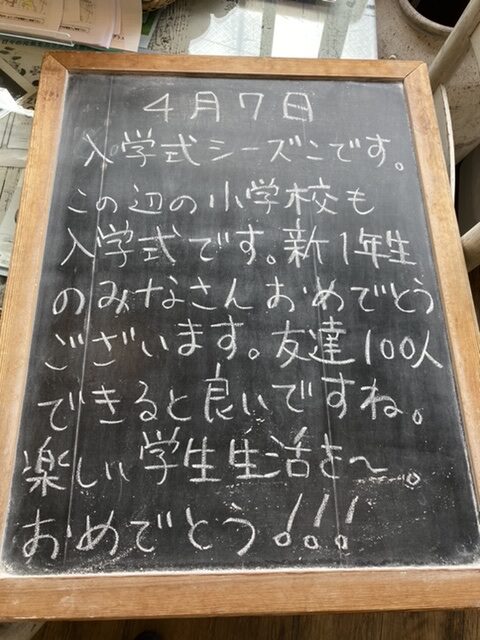 4月7日
入学式シーズンです。
この辺の小学校も
入学式です。新1年生
のみなさんおめでとう
ございます。友達100人
できると良いですね。
楽しい学生生活を〜。
おめでとう!!!